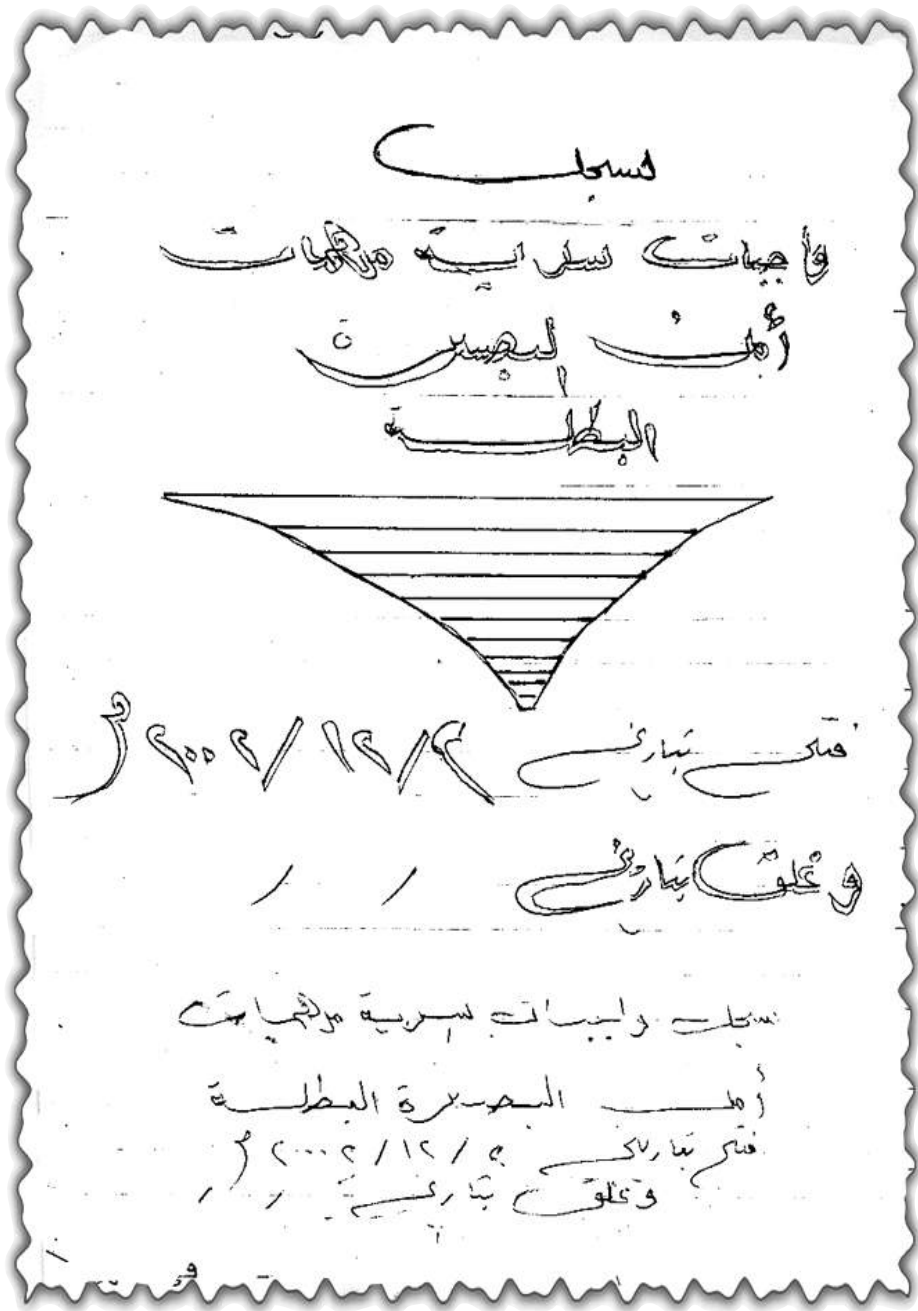 سجل
واجبات سرية مدلهمات
أمن البصيرة
البطلة
فتح بتاريخ ٢/١٢/٢٠٠٢م
وغلق بتاريخ / /
سجل واجبات سرية مدلهمات
أمن البصيرة البطلة
فتح بتاريخ /١٢/٢٠٠٢م
وغلق بتاريخ / /